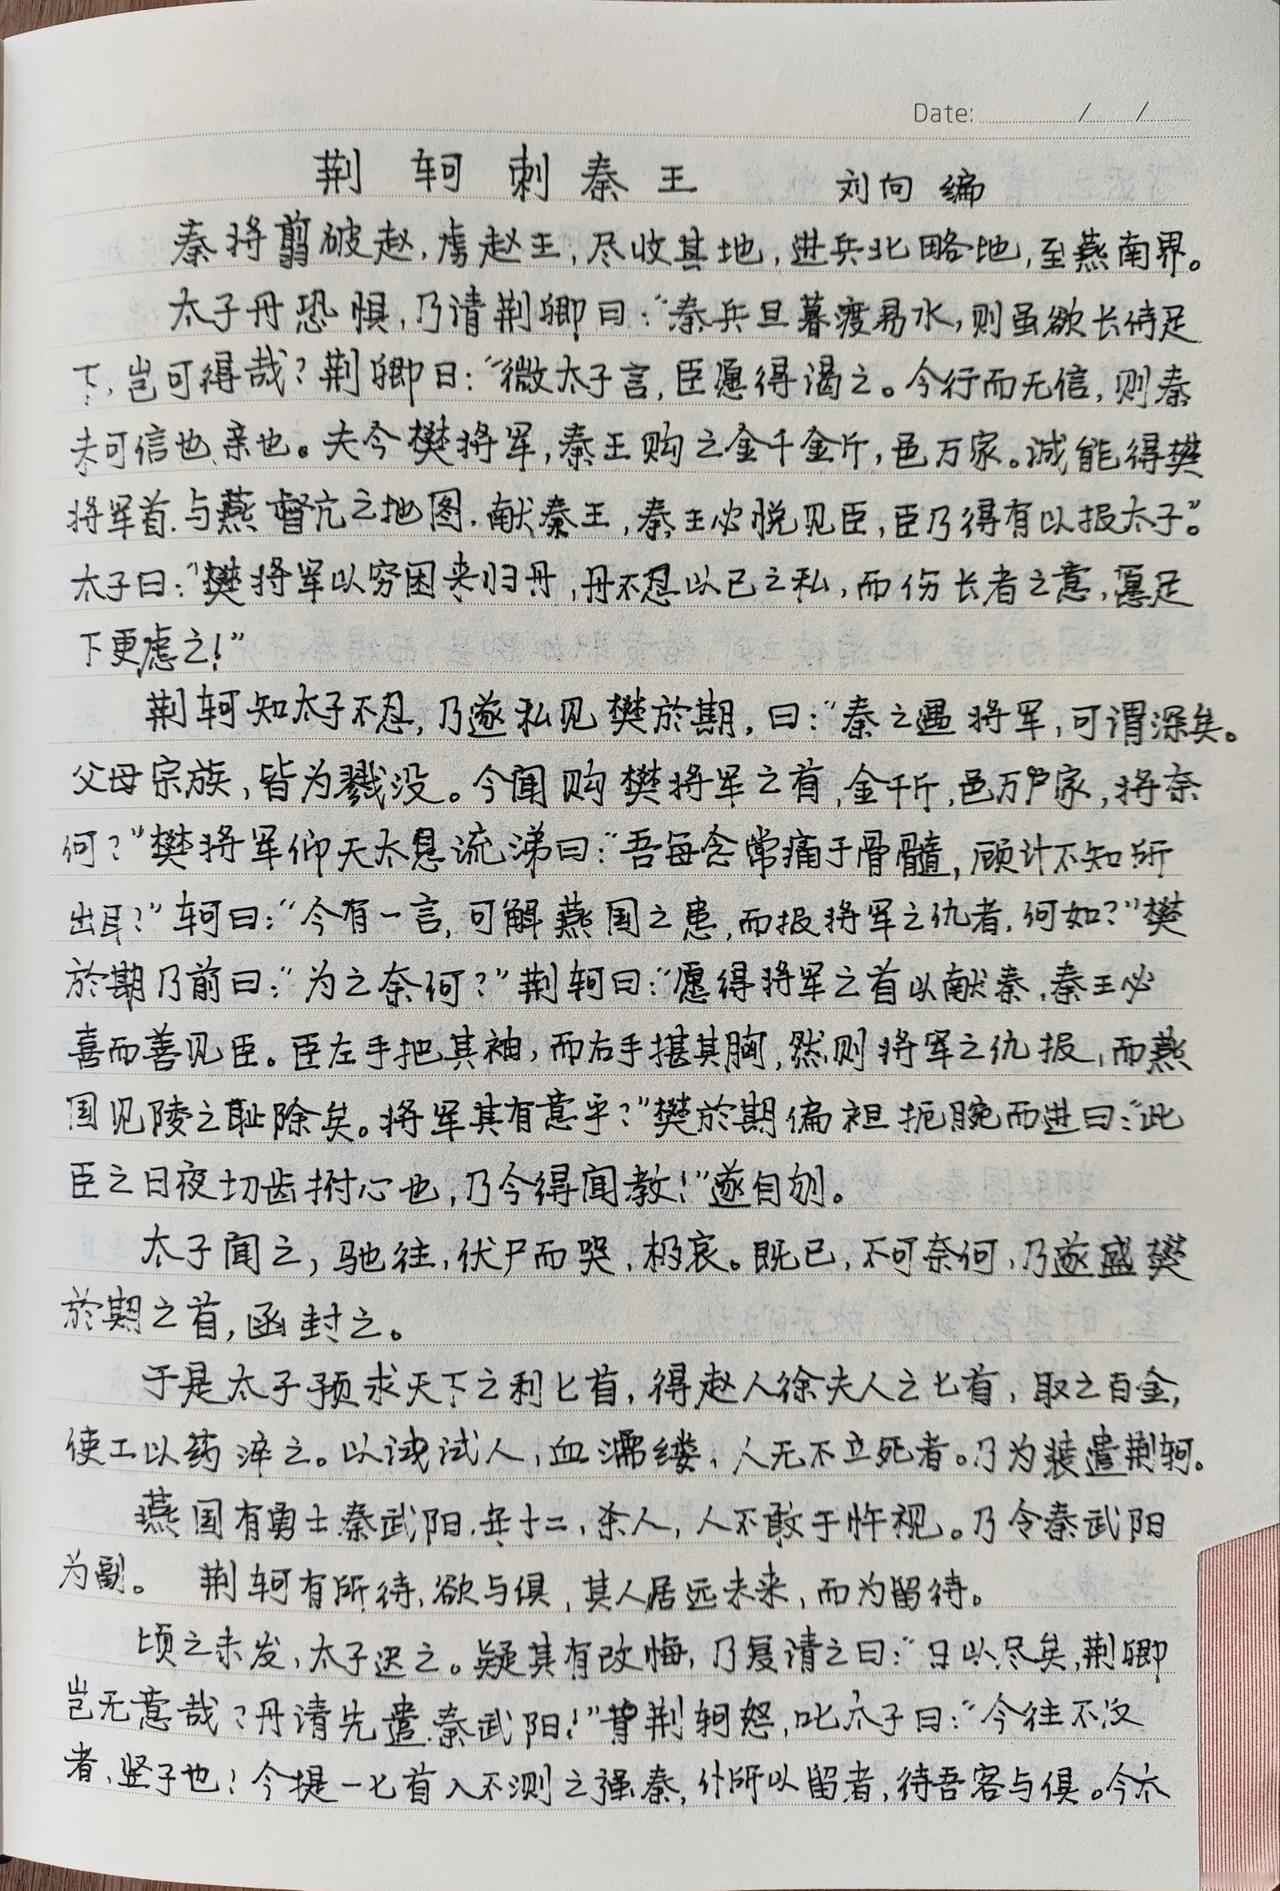 Date: / /
荆轲刺秦王 刘向 编
秦将翦破赵,虏赵王,尽收其地,进兵北略地,至燕南界。
太子丹恐惧,乃请荆卿曰:“秦兵旦暮渡易水,则虽欲长侍足
下,岂可得哉?荆卿曰:“微太子言,臣愿得谒之。今行而无信,则秦
未可信也、亲也。夫今樊将军,秦王购之金千金斤,邑万家。诚能得樊
将军首.与燕督亢之地图.献秦王,秦王必悦见臣,臣乃得有以报太子”。
太子曰:“樊将军以穷困来归丹,丹不忍以己之私,而伤长者之意,愿足
下更虑之!”
荆轲知太子不忍,乃遂私见樊於期,曰:“秦之遇将军,可谓深矣。
父母宗族,皆为戮没。今闻购樊将军之首,金千斤,邑万户家,将奈
何?”樊将军仰天太息流涕曰:“吾每念常痛于骨髓,顾计不知所
出耳?”轲曰:“今有一言,可解燕国之患,而报将军之仇者,何如?”樊
於期乃前曰:“为之奈何?”荆轲曰:“愿得将军之首以献秦,秦王必
喜而善见臣。臣左手把其袖,而右手揕其胸,然则将军之仇报,而燕
国见陵之耻除矣。将军其有意乎?”樊於期偏袒扼腕而进曰:“此
臣之日夜切齿拊心也,乃今得闻教!”遂自刎。
太子闻之,驰往,伏尸而哭,极哀。既已,不可奈何,乃遂盛樊
於期之首,函封之。
于是太子预求天下之利匕首,得赵人徐夫人之匕首,取之百金,
使工以药淬之。以试人,血濡缕,人无不立死者。乃为装遣荆轲。
燕国有勇士秦武阳,年十二,杀人,人不敢于忤视。乃令秦武阳
为副。 荆轲有所待,欲与俱,其人居远未来,而为留待。
顷之未发,太子迟之。疑其有改悔,乃复请之曰:“日以尽矣,荆卿
岂无意哉?丹请先遣秦武阳!”荆轲怒,叱太子曰:“今往不反
者,竖子也!今提一匕首入不测之强秦,仆所以留者,待吾客与俱。今太